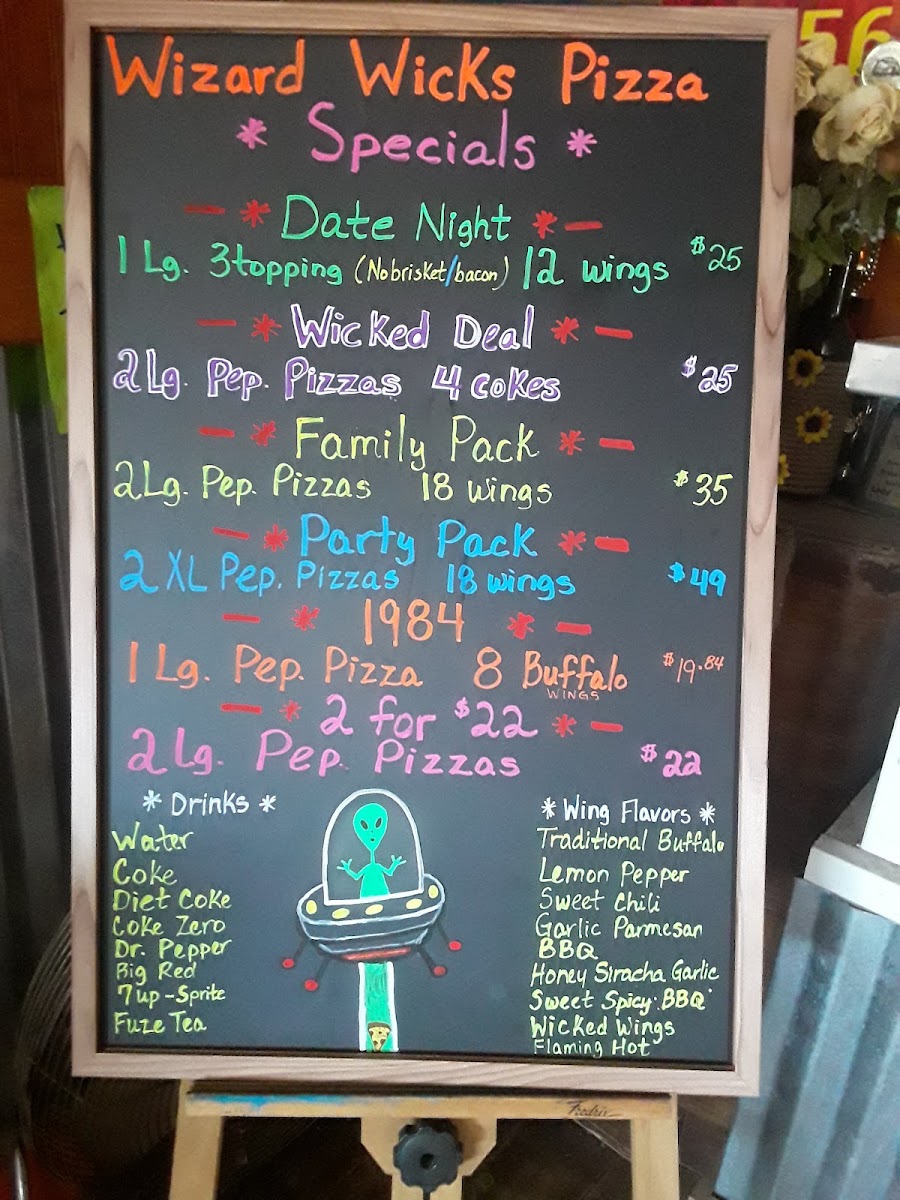 56
Wizard Wicks Pizza
* Specials *
- * Date Night * -
1 Lg. 3topping (No brisket/bacon) 12 wings $25
- * Wicked Deal * -
2 Lg. Pep. Pizzas 4 cokes $25
- * Family Pack * -
2 Lg. Pep. Pizzas 18 wings $35
- * Party Pack * -
2 XL Pep. Pizzas 18 wings $49
- * 1984 * -
1 Lg. Pep. Pizza 8 Buffalo $19.84
WINGS
- * 2 for $22 * -
2 Lg. Pep. Pizzas $22
* Drinks *
Water
Coke
Diet Coke
Coke Zero
Dr. Pepper
Big Red
7up - Sprite
Fuze Tea
* Wing Flavors *
Traditional Buffalo
Lemon Pepper
Sweet Chili
Garlic Parmesan
BBQ
Honey Siracha Garlic
Sweet Spicy BBQ
Wicked Wings
Flaming Hot
Fredrix